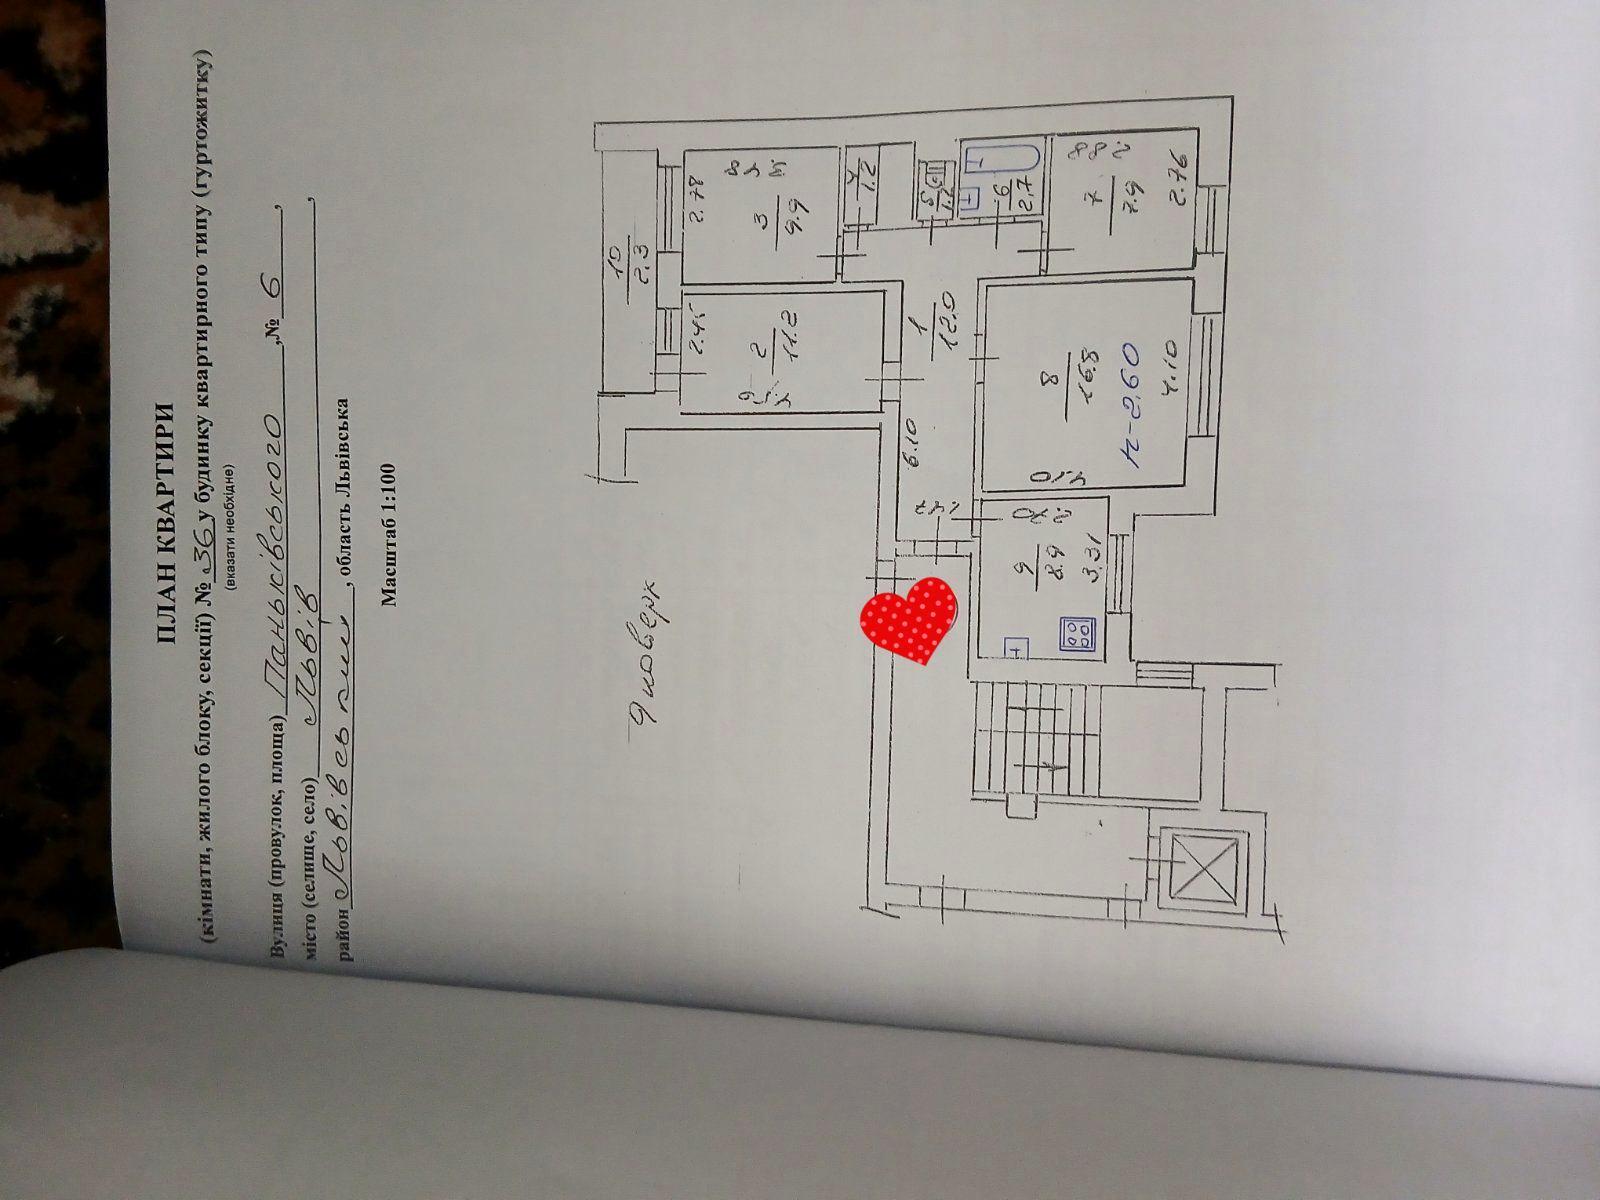 ПЛАН КВАРТИРИ
(кімнати, жилого блоку, секції) № 36 у будинку квартирного типу (гуртожитку)
(вказати необхідне)
Вулиця (провулок, площа) Паньківського, № 6,
місто (селище, село) Львів,
район Львівський, область Львівська
Масштаб 1:100
9 поверх
10
2.3
2.45
2.78
2
11.2
3
9.9
4
1.2
5
1.2
6
2.7
7
7.9
2.88
2.76
1
12.0
6.10
8
16.8
h-2.60
4.10
9
8.9
2.70
3.31